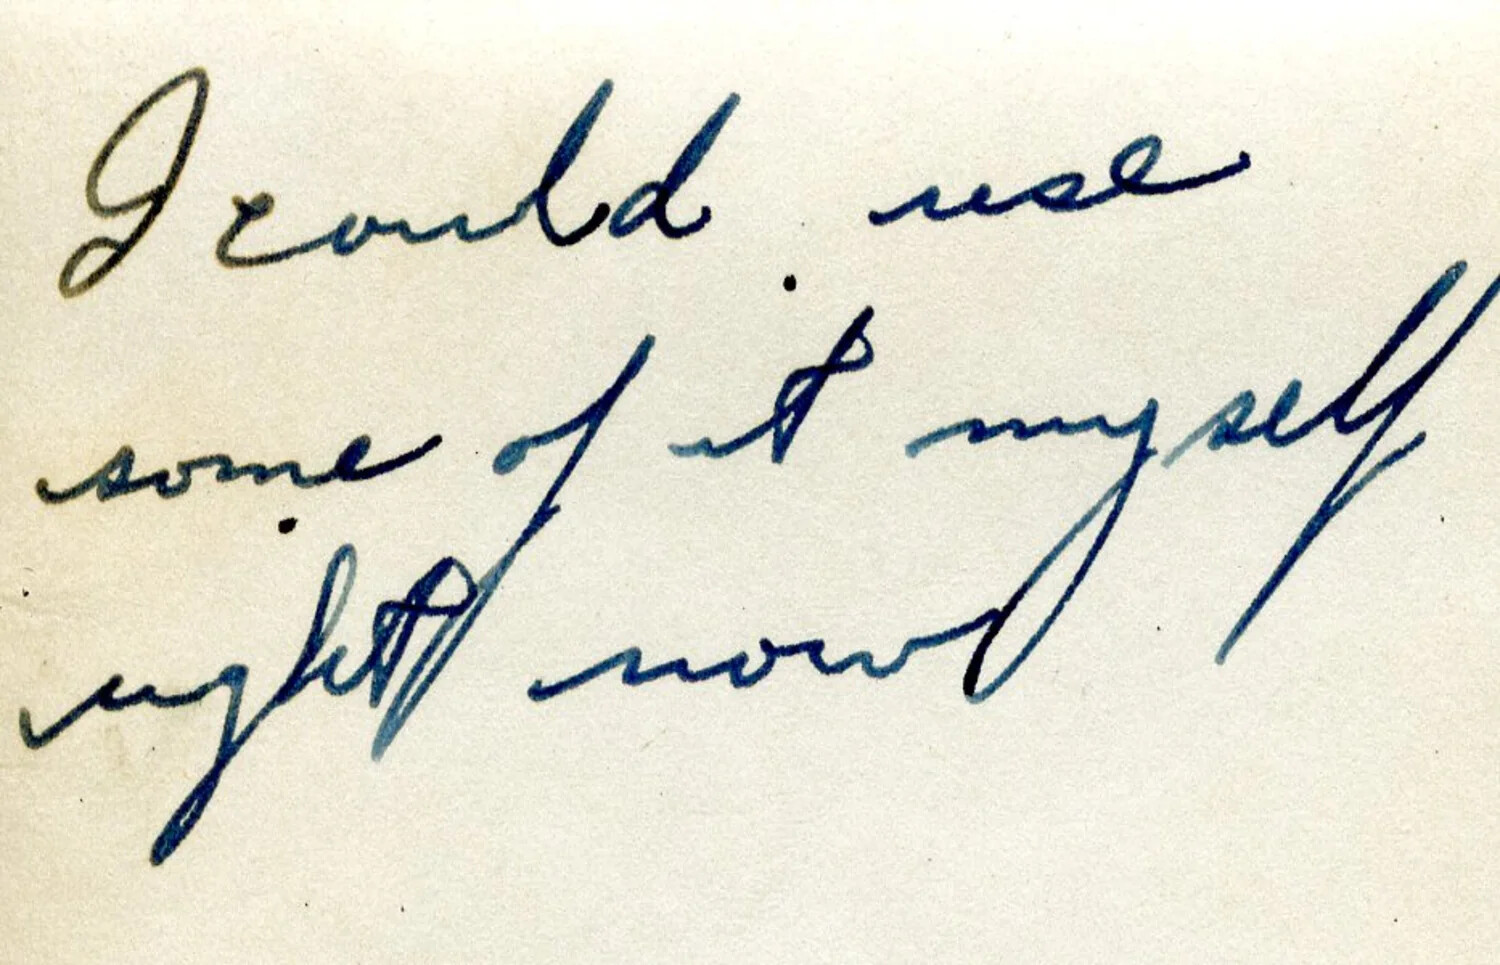 I could use
some of it myself
right now